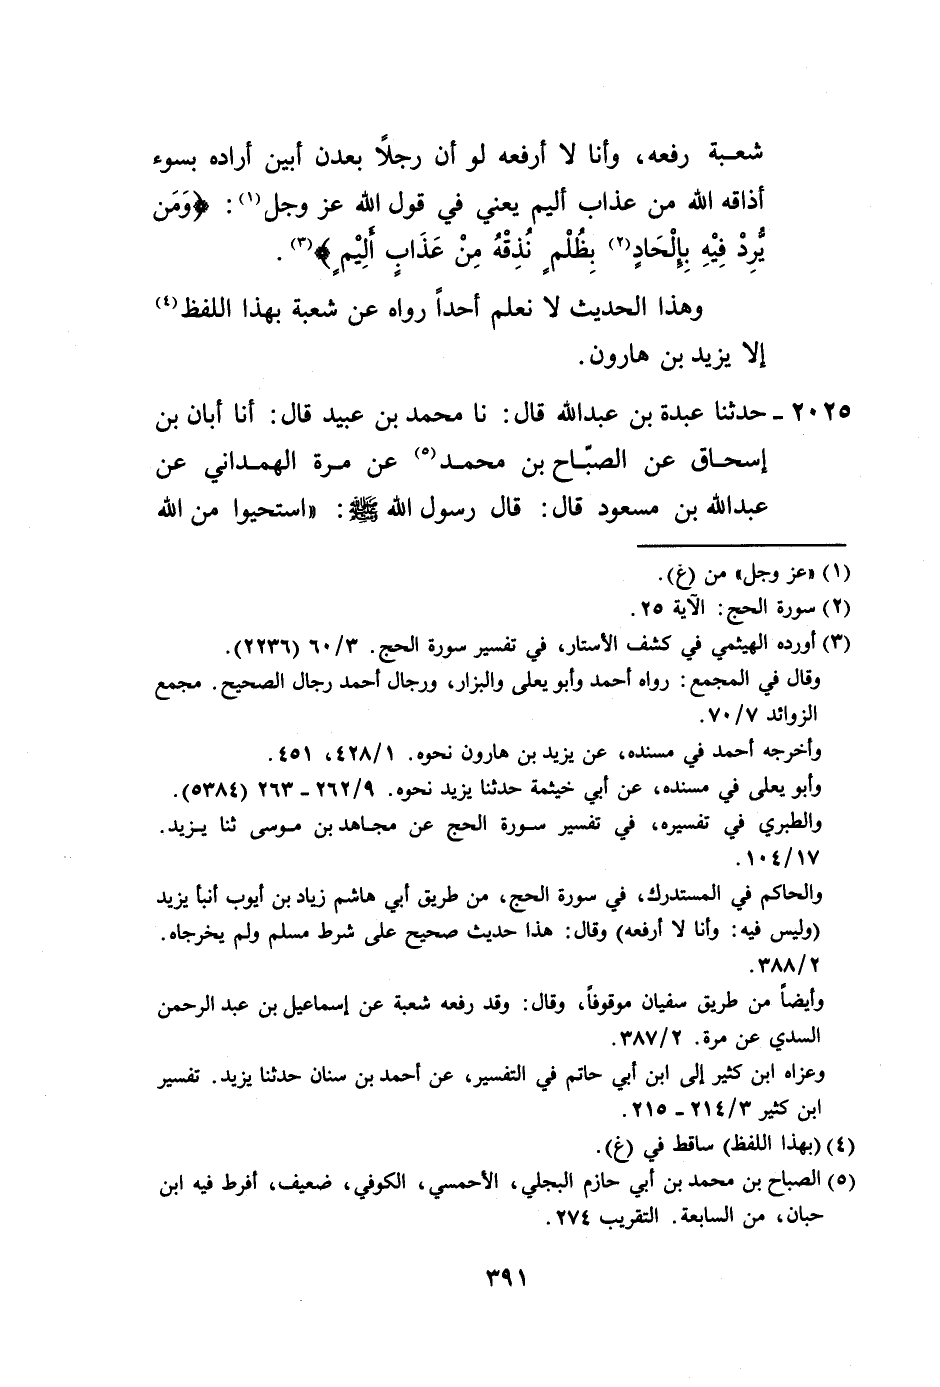 شعبة رفعه، وأنا لا أرفعه لو أن رجلاً بعدن أبين أراده بسوء
أذاقه الله من عذاب أليم يعني في قول الله عز وجل(١): ﴿وَمَن
يُّرِدْ فِيْهِ بِإِلْحَادٍ(٢) بِظُلْمٍ نُذِقْهُ مِنْ عَذَابٍ أَلِيْمٍ﴾(٣).
وهذا الحديث لا نعلم أحداً رواه عن شعبة بهذا اللفظ(٤)
إلا يزيد بن هارون.
٢٠٢٥ - حدثنا عبدة بن عبدالله قال: نا محمد بن عبيد قال: أنا أبان بن
إسحاق عن الصبّاح بن محمد(٥) عن مرة الهمداني عن
عبدالله بن مسعود قال: قال رسول الله ﷺ: «استحيوا من الله
(١) «عز وجل» من (غ).
(٢) سورة الحج: الآية ٢٥.
(٣) أورده الهيثمي في كشف الأستار، في تفسير سورة الحج. ٦٠/٣ (٢٢٣٦).
وقال في المجمع: رواه أحمد وأبو يعلى والبزار، ورجال أحمد رجال الصحيح. مجمع
الزوائد ٧٠/٧.
وأخرجه أحمد في مسنده، عن يزيد بن هارون نحوه. ٤٢٨/١، ٤٥١.
وأبو يعلى في مسنده، عن أبي خيثمة حدثنا يزيد نحوه. ٢٦٢/٩ - ٢٦٣ (٥٣٨٤).
والطبري في تفسيره، في تفسير سورة الحج عن مجاهد بن موسى ثنا يزيد.
١٠٤/١٧.
والحاكم في المستدرك، في سورة الحج، من طريق أبي هاشم زياد بن أيوب أنبأ يزيد
(وليس فيه: وأنا لا أرفعه) وقال: هذا حديث صحيح على شرط مسلم ولم يخرجاه.
٣٨٨/٢.
وأيضاً من طريق سفيان موقوفاً، وقال: وقد رفعه شعبة عن إسماعيل بن عبد الرحمن
السدي عن مرة. ٣٨٧/٢.
وعزاه ابن كثير إلى ابن أبي حاتم في التفسير، عن أحمد بن سنان حدثنا يزيد. تفسير
ابن كثير ٢١٤/٣ - ٢١٥.
(٤) (بهذا اللفظ) ساقط في (غ).
(٥) الصباح بن محمد بن أبي حازم البجلي، الأحمسي، الكوفي، ضعيف، أفرط فيه ابن
حبان، من السابعة. التقريب ٢٧٤.
٣٩١